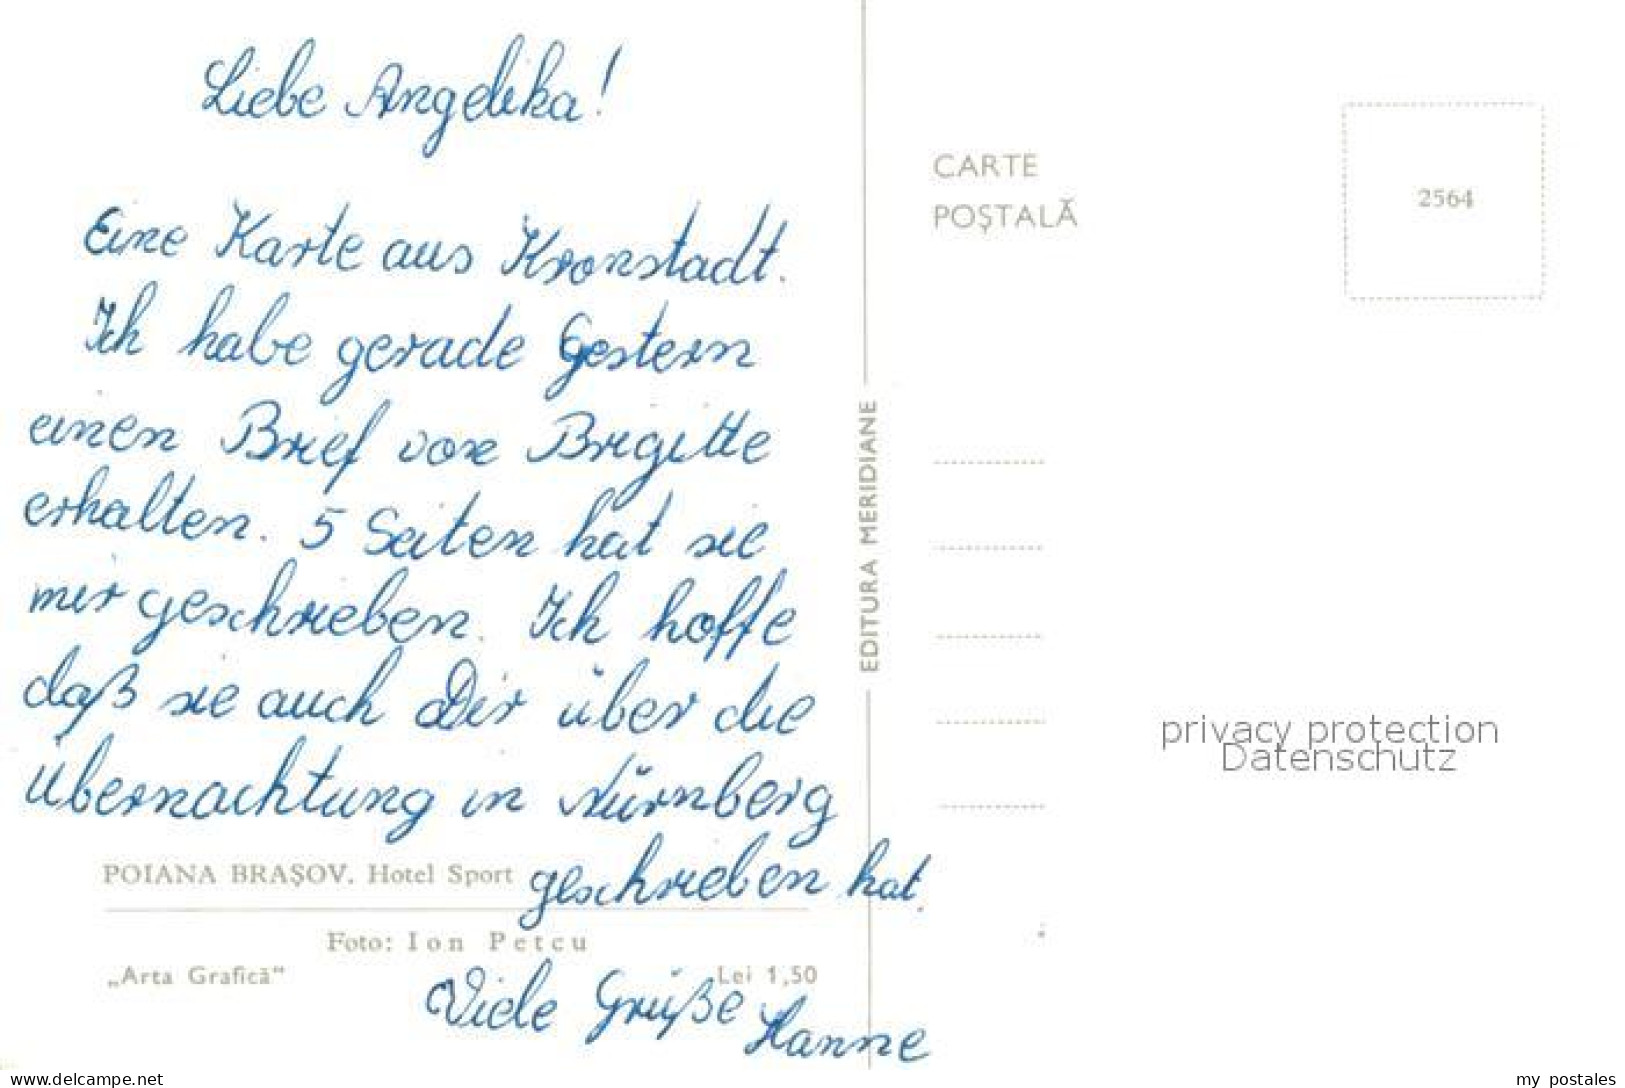 Liebe Angelika!
Eine Karte aus Kronstadt.
Ich habe gerade Gestern
einen Brief von Brigitte
erhalten. 5 Seiten hat sie
mir geschrieben. Ich hoffe
daß sie auch Dir über die
Übernachtung in Nürnberg
geschrieben hat.
Viele Grüße Hanne
POIANA BRAȘOV. Hotel Sport
Foto: Ion Petcu
„Arta Grafică”
Lei 1,50
EDITURA MERIDIANE
CARTE
POȘTALĂ
2564
privacy protection
Datenschutz
delcampe.net
my_postales